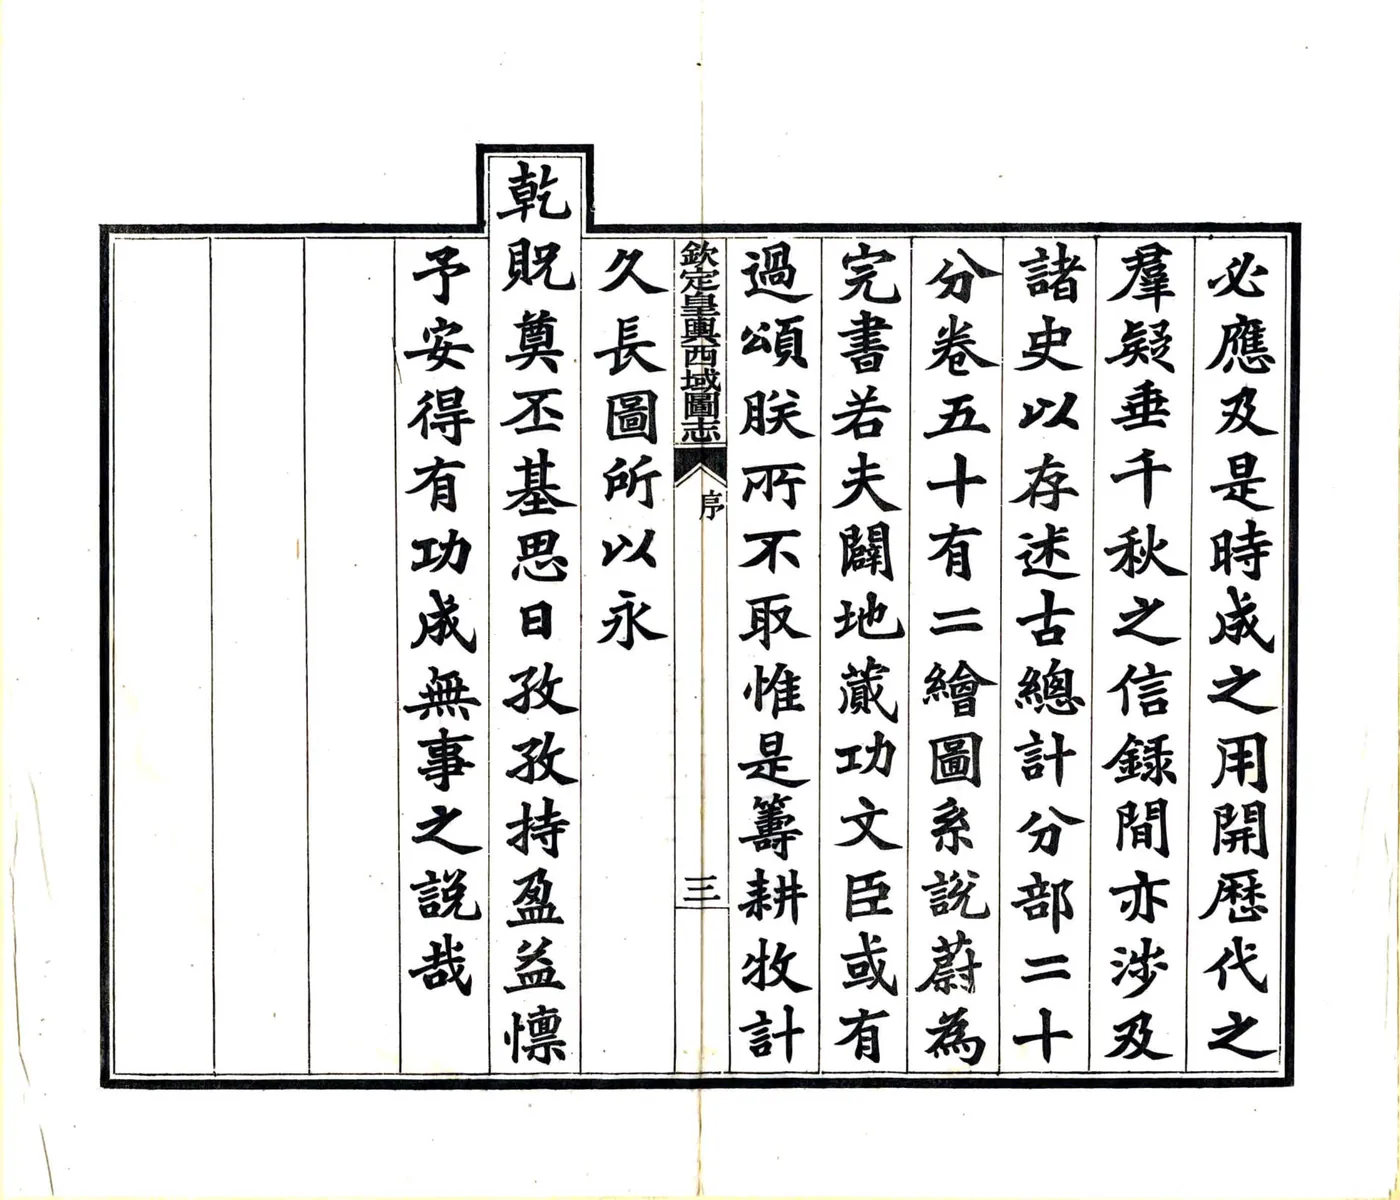 必應及是時成之用開歷代之
羣疑垂千秋之信録間亦涉及
諸史以存述古總計分部二十
分卷五十有二繪圖系說蔚為
完書若夫闢地蕆功文臣或有
過頌朕所不取惟是籌耕牧計
欽定皇輿西域圖志
序
三
久長圖所以永
乾貺奠丕基思日孜孜持盈益懔
予安得有功成無事之説哉